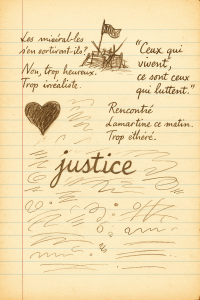 Les misérables
s'en sortiront-ils?
Non, trop heureux.
Trop irréaliste.
"Ceux qui
vivent,
ce sont ceux
qui luttent."
Rencontré
Lamartine ce matin.
Trop éthéré.
justice